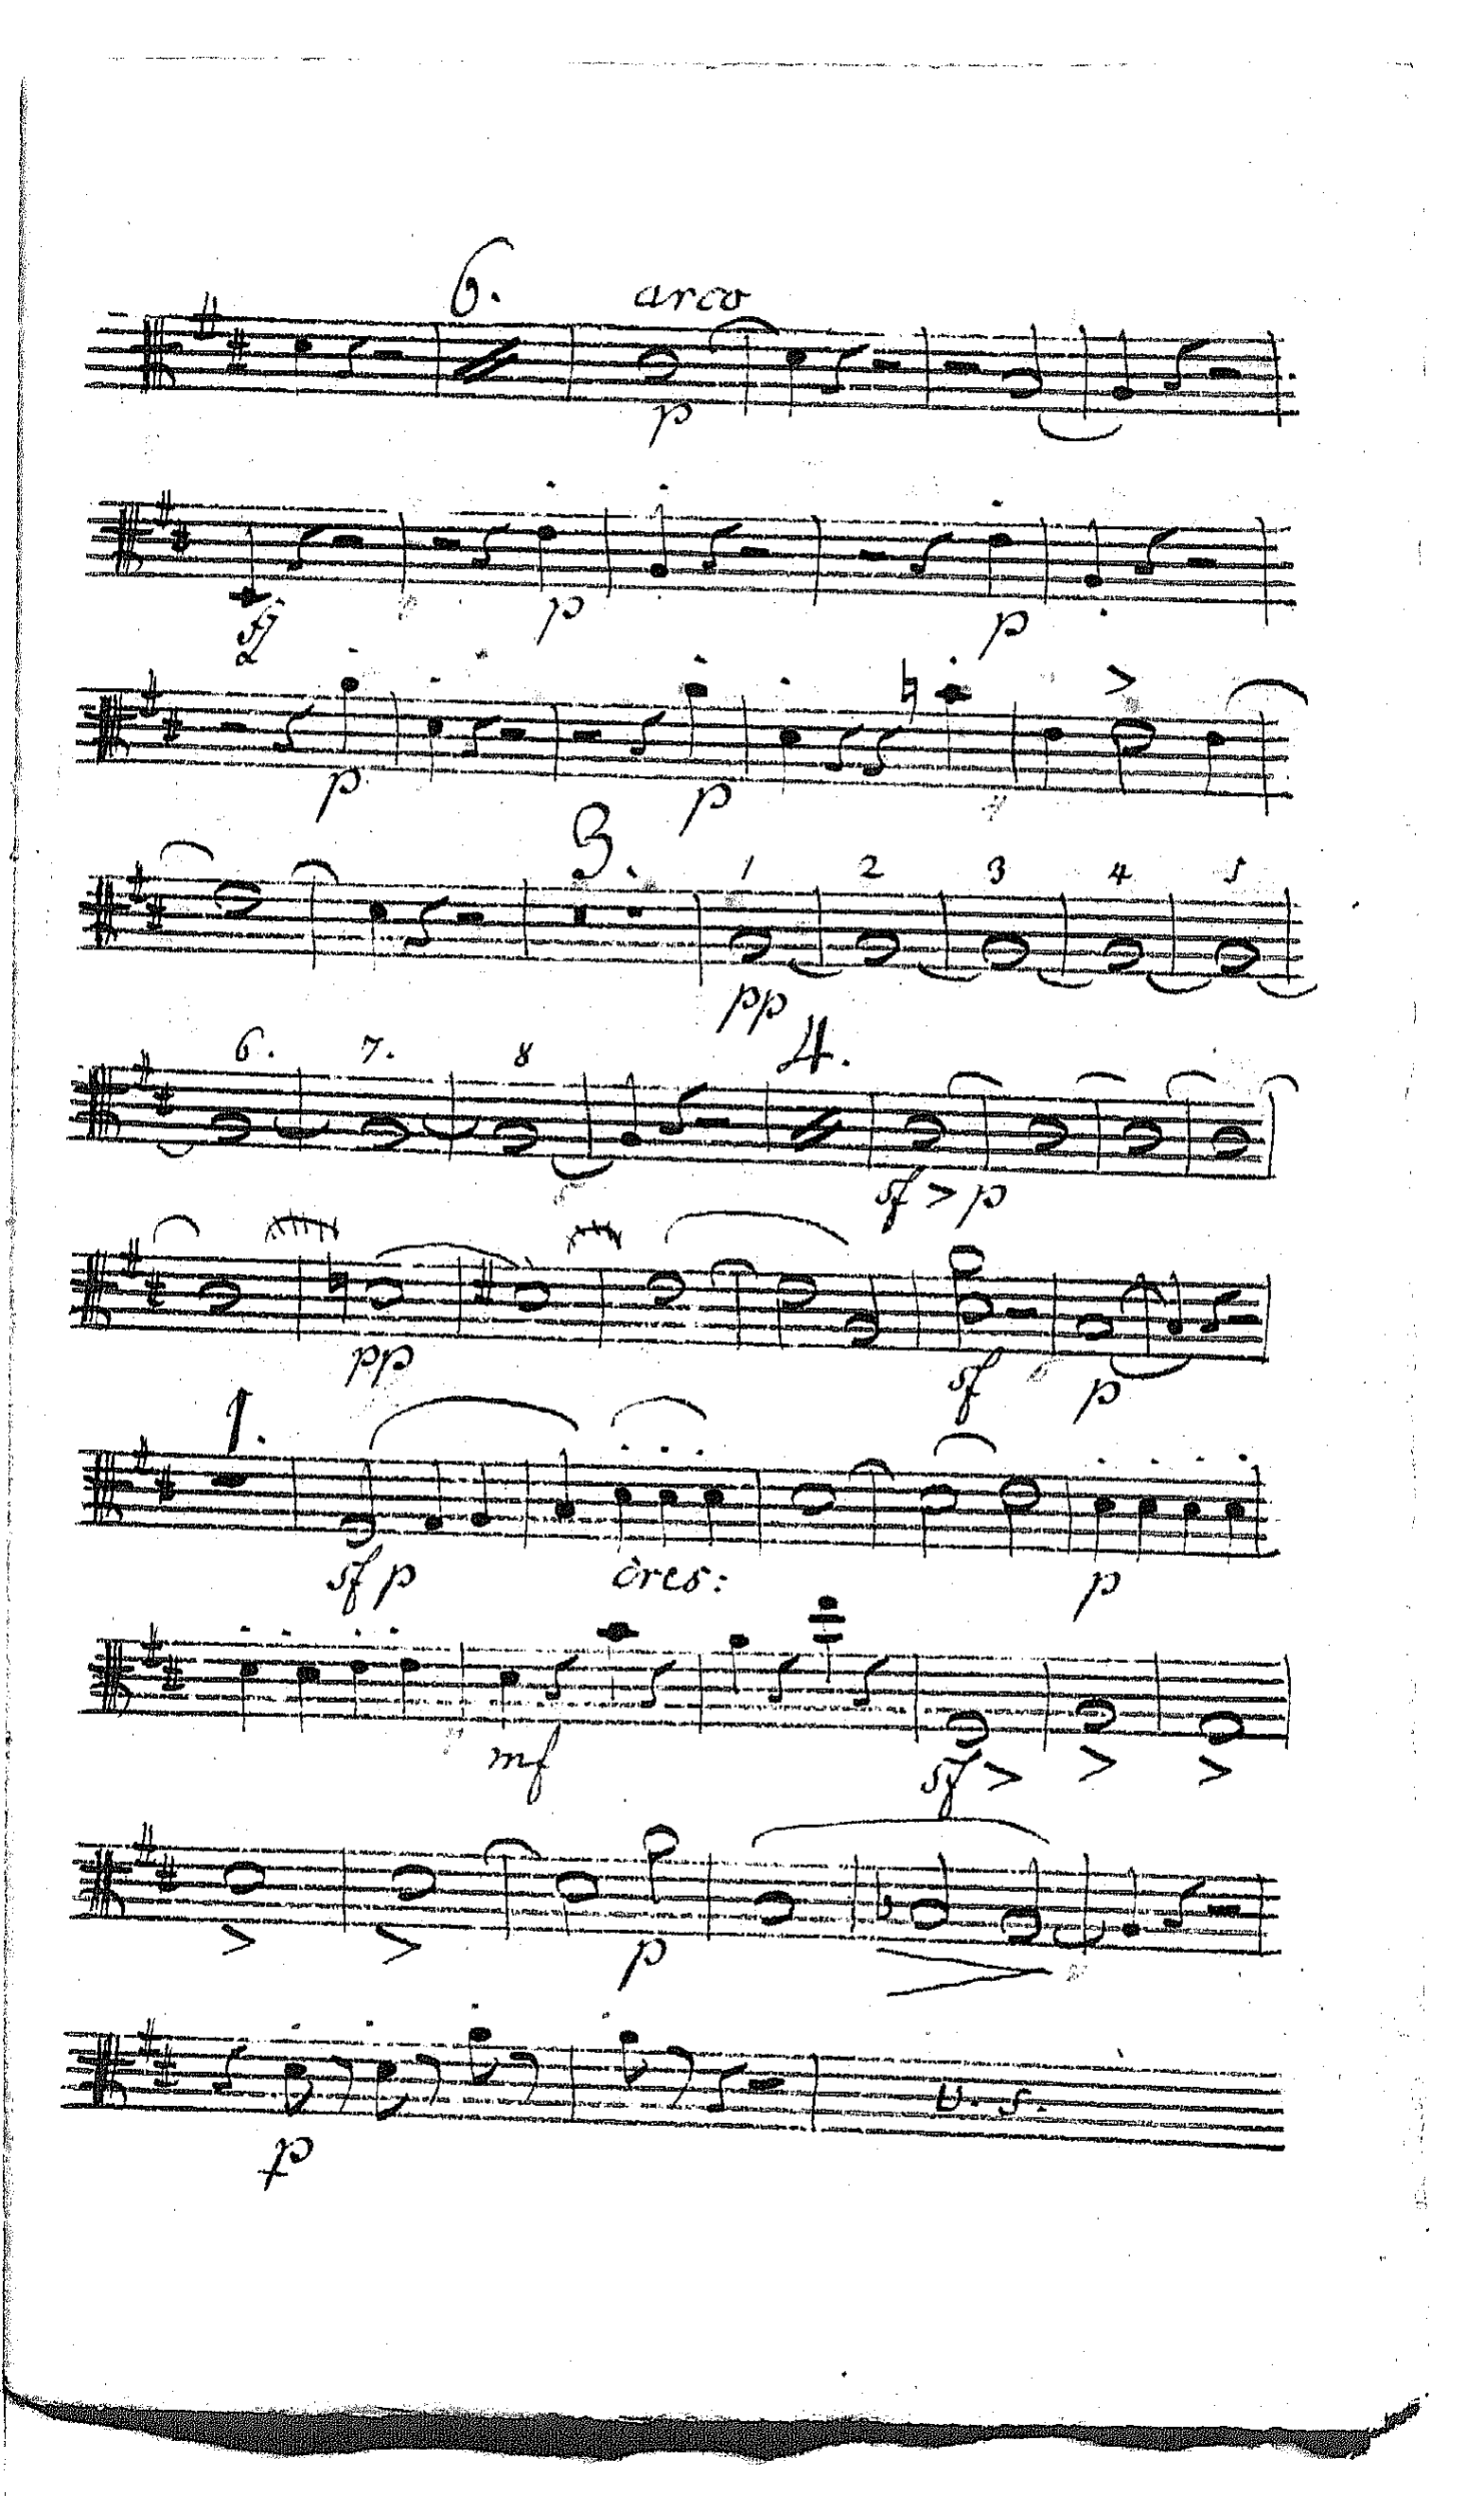 6. arco
p
p p
p p
3. 1 2 3 4 5
pp
6. 7. 8 4.
sf p
pp sf p
1.
sf p cres: p
mf sf
p
p
v. s.